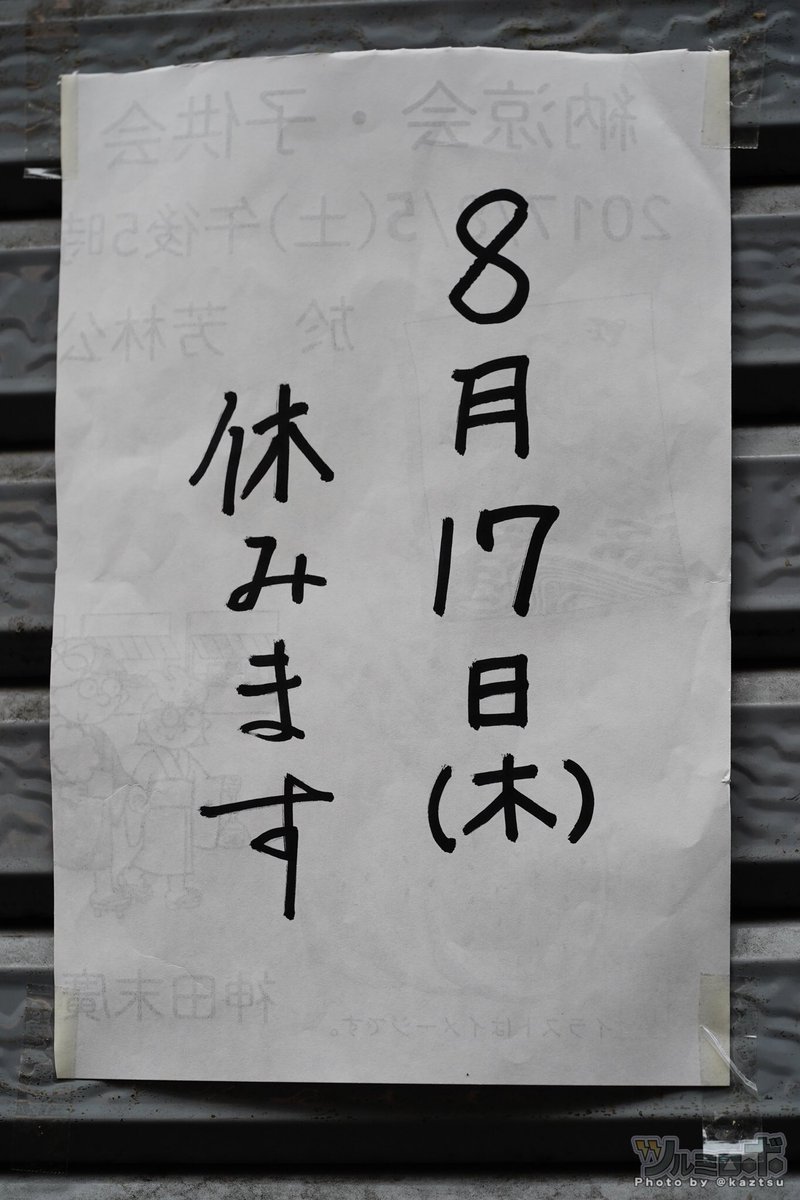 8月17日(木)
休みます
納涼会・子供会
2017/8/5(土)午後5時
於 芳林公
神田末廣
イラストはイメージです。
ツルミロボ
Photo by @kaztsu